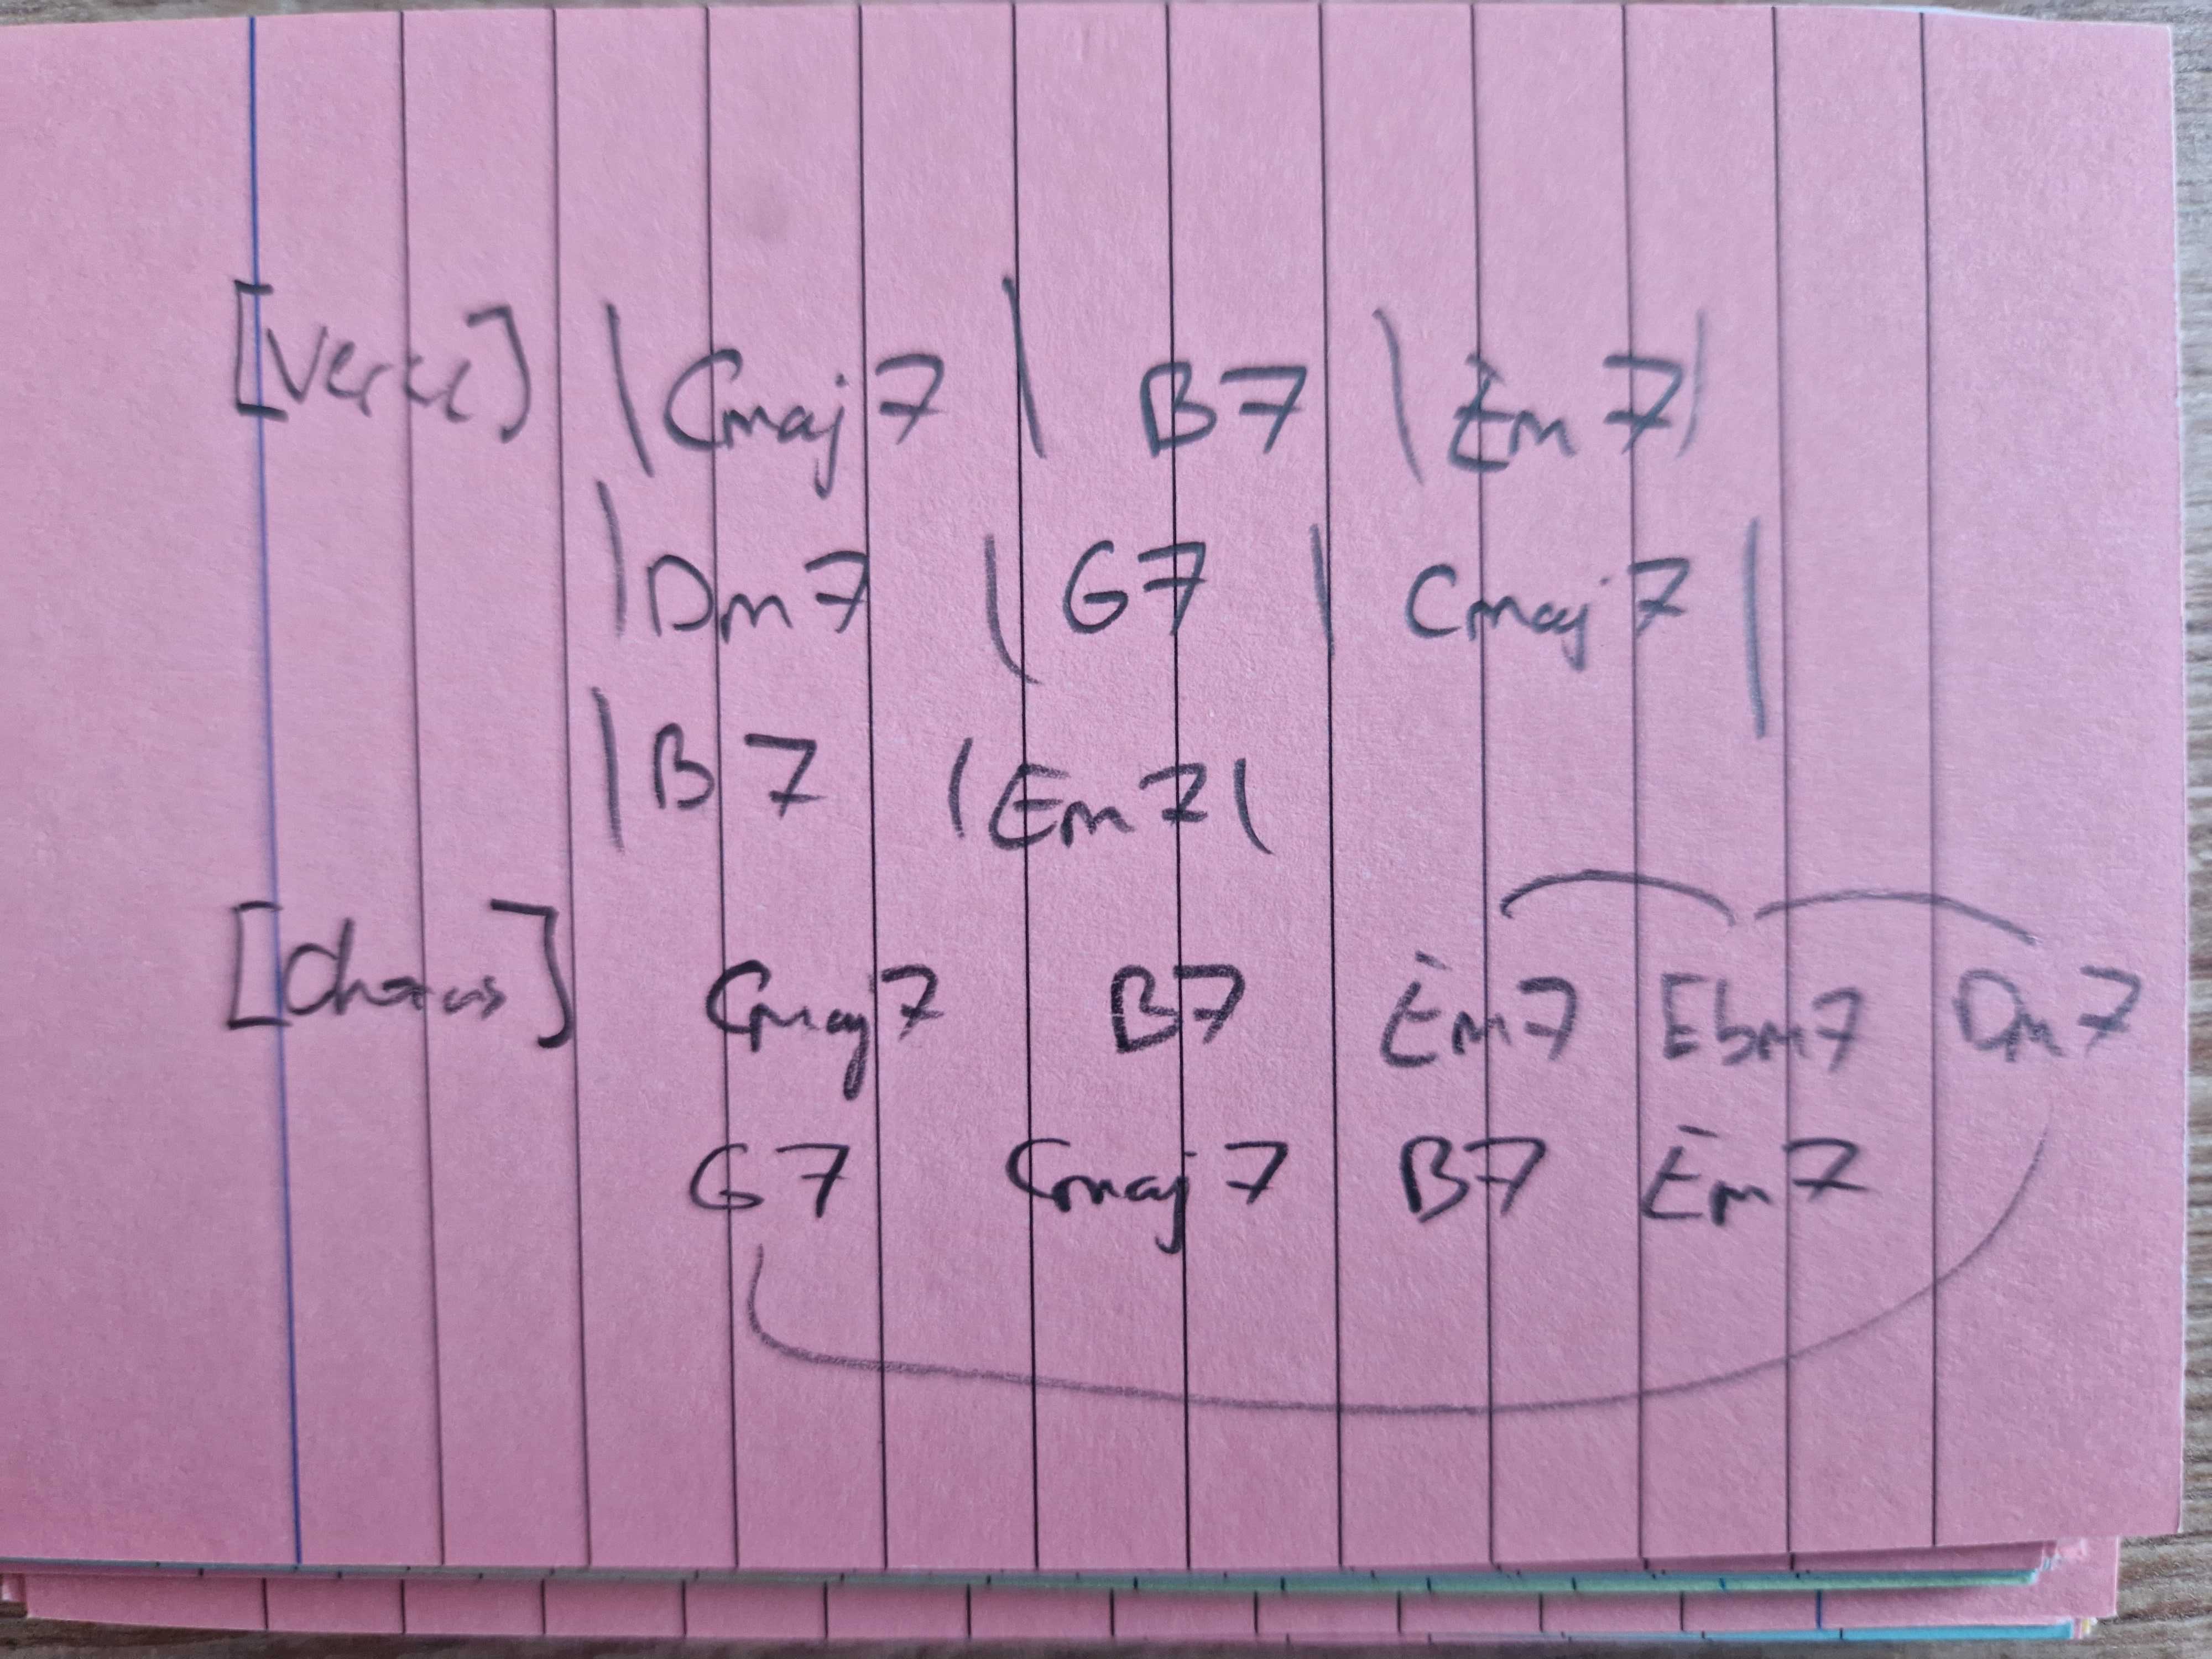 [Verse] | Cmaj7 | B7 | Em7 |
| Dm7 | G7 | Cmaj7 |
| B7 | Em7 |
[Chorus] Cmaj7 B7 Em7 Ebm7 Dm7
G7 Cmaj7 B7 Em7